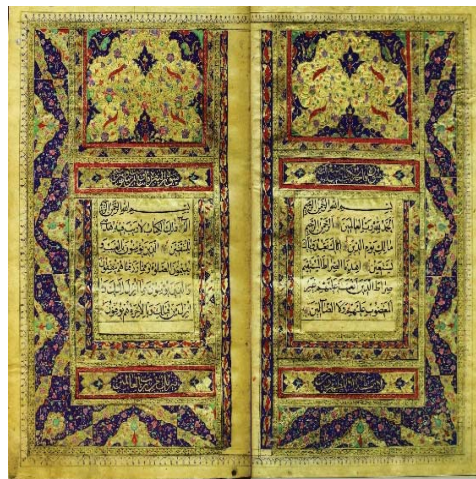 بسم الله الرحمن الرحيم
الحمد لله رب العالمين الرحمن الرحيم
مالك يوم الدين اياك نعبد واياك
نستعين اهدنا الصراط المستقيم
صراط الذين انعمت عليهم غير
المغضوب عليهم ولا الضالين
بسم الله الرحمن الرحيم
الم ذلك الكتاب لا ريب فيه هدى
للمتقين الذين يؤمنون بالغيب و
يقيمون الصلوة ومما رزقناهم ينفقون
والذين يؤمنون بما انزل اليك وما
انزل من قبلك وبالاخرة هم يوقنون